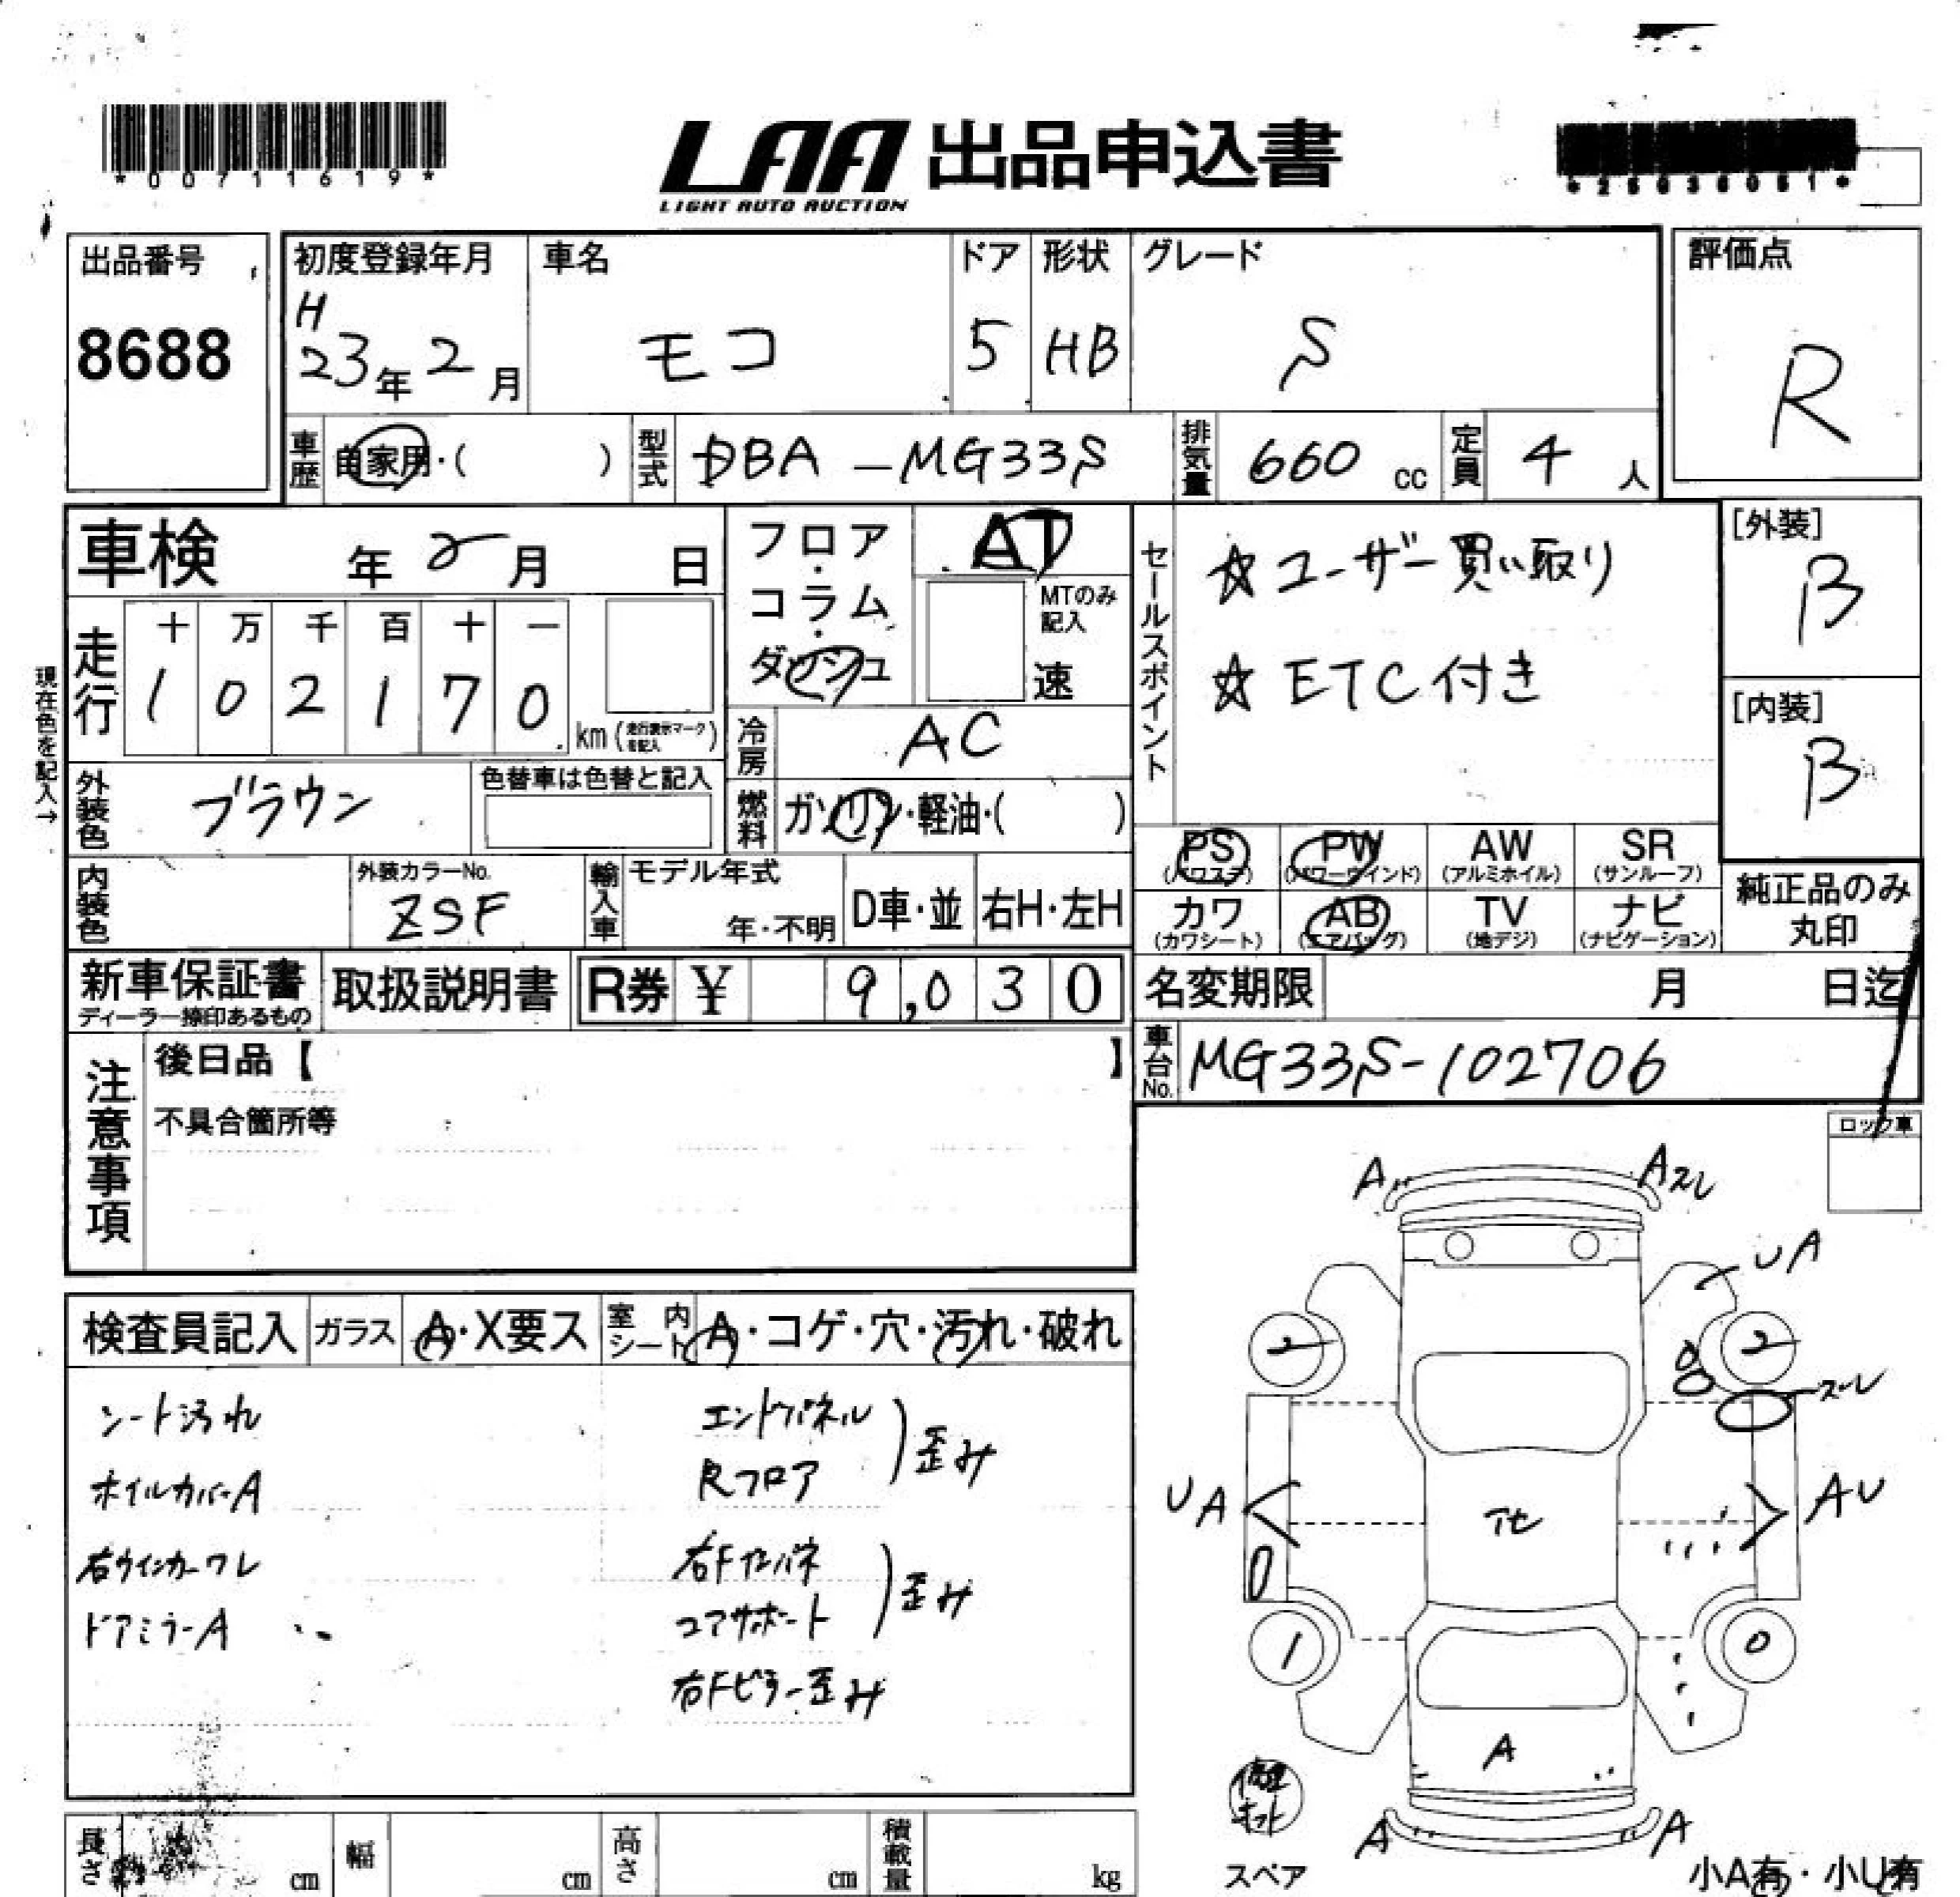 *00711619*
LAA 出品申込書
LIGHT AUTO AUCTION
*25036051*
出品番号
8688
初度登録年月
H
23年 2月
車名
モコ
ドア
5
形状
HB
グレード
S
評価点
R
車歴 自家用・( )
型式 DBA-MG33S
排気量 660 cc
定員 4 人
車検 年 月 日
走行
十 万 千 百 十 一
1 0 2 1 7 0
km (走行表示マークを記入)
現在色を記入→
フロア・コラム・ダッシュ
AT
MTのみ記入
速
冷房 AC
燃料 ガソリン・軽油・( )
セールスポイント
☆ユーザー買い取り
☆ETC付き
[外装]
B
[内装]
B
外装色 ブラウン
色替車は色替と記入
内装色
外装カラーNo.
ZSF
輸入車
モデル年式
年・不明
D車・並
右H・左H
PS
(パワステ)
PW
(パワーウインド)
AW
(アルミホイル)
SR
(サンルーフ)
カワ
(カワシート)
AB
(エアバッグ)
TV
(地デジ)
ナビ
(ナビゲーション)
純正品のみ
丸印
新車保証書
ディーラー捺印あるもの
取扱説明書
R券 ¥ 9,030
名変期限 月 日迄
車台No. MG33S-102706
注意事項
後日品【 】
不具合箇所等
ロック車
検査員記入
ガラス A・X要ス
室内シート A・コゲ・穴・汚れ・破れ
シート汚れ
ホイルカバーA
右ウインカーワレ
ドアミラーA
エンドパネル
Rフロア
歪み
右Fインパネ
コアサポート
歪み
右Fピラー歪み
A
Aスレ
UA
2
2
8
スレ
UA
AU
1
0
A
A
A
修理キット
スペア
小A有・小U有
長さ cm
幅 cm
高さ cm
積載量 kg